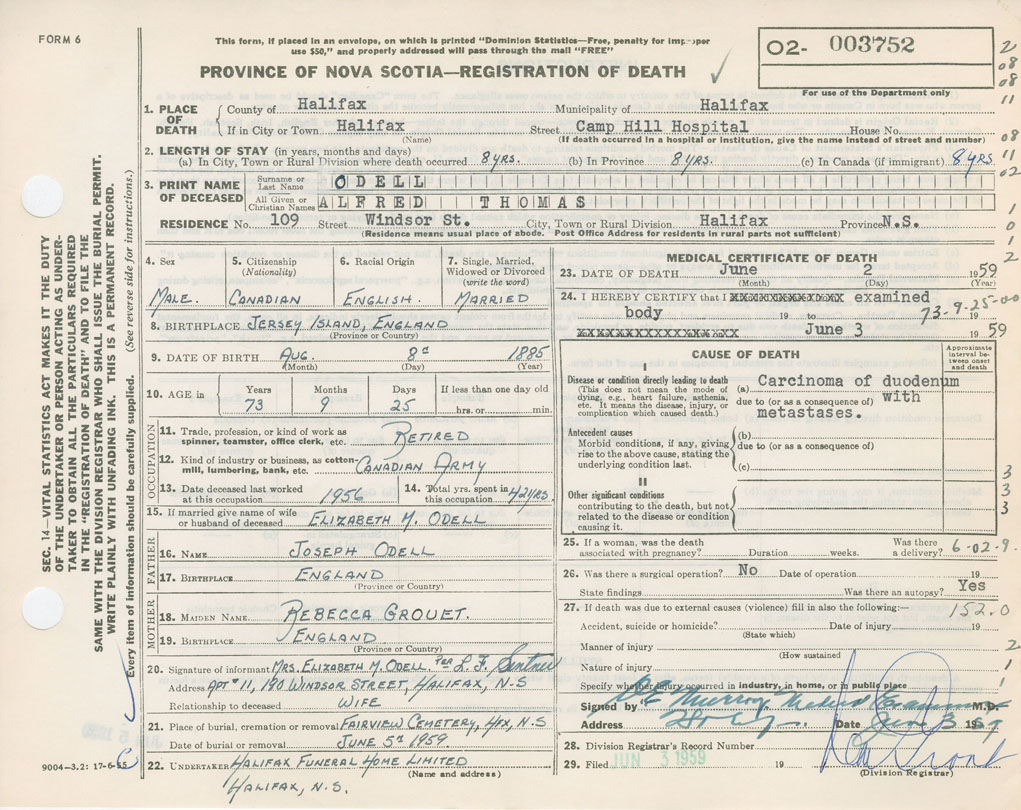 FORM 6
This form, if placed in an envelope, on which is printed "Dominion Statistics—Free, penalty for improper
use $50," and properly addressed will pass through the mail "FREE"
PROVINCE OF NOVA SCOTIA—REGISTRATION OF DEATH
02- 003752
For use of the Department only
1. PLACE OF DEATH
County of Halifax Municipality of Halifax
If in City or Town Halifax Street Camp Hill Hospital House No.
(Name) (If death occurred in a hospital or institution, give the name instead of street and number)
2. LENGTH OF STAY (in years, months and days)
(a) In City, Town or Rural Division where death occurred 8 yrs. (b) In Province 8 yrs. (c) In Canada (if immigrant) 8 yrs
3. PRINT NAME OF DECEASED
Surname or Last Name ODELL
All Given or Christian Names ALFRED THOMAS
RESIDENCE No. 109 Street Windsor St. City, Town or Rural Division Halifax Province N.S.
(Residence means usual place of abode. Post Office Address for residents in rural parts not sufficient)
4. Sex
MALE.
5. Citizenship (Nationality)
CANADIAN
6. Racial Origin
ENGLISH.
7. Single, Married, Widowed or Divorced (write the word)
MARRIED
8. BIRTHPLACE JERSEY ISLAND, ENGLAND
(Province or Country)
9. DATE OF BIRTH AUG. 8th 1885
(Month) (Day) (Year)
10. AGE in Years 73 Months 9 Days 25 If less than one day old hrs. or min.
OCCUPATION
11. Trade, profession, or kind of work as spinner, teamster, office clerk, etc. RETIRED
12. Kind of industry or business, as cotton-mill, lumbering, bank, etc. CANADIAN ARMY
13. Date deceased last worked at this occupation 1956
14. Total yrs. spent in this occupation 42 YRS.
15. If married give name of wife or husband of deceased ELIZABETH M. ODELL
FATHER
16. NAME JOSEPH ODELL
17. BIRTHPLACE ENGLAND
(Province or Country)
MOTHER
18. MAIDEN NAME REBECCA GROUET.
19. BIRTHPLACE ENGLAND
(Province or Country)
20. Signature of informant MRS. ELIZABETH M. ODELL. PER L. F.
Address APT #11, 180 WINDSOR STREET, HALIFAX, N.S
Relationship to deceased WIFE
21. Place of burial, cremation or removal FAIRVIEW CEMETERY, HFX, N.S
Date of burial or removal JUNE 5th 1959.
22. UNDERTAKER HALIFAX FUNERAL HOME LIMITED
(Name and address)
HALIFAX, N.S.
MEDICAL CERTIFICATE OF DEATH
23. DATE OF DEATH June 2 1959
(Month) (Day)
24. I HEREBY CERTIFY that I examined
body 19 to 19
June 3 1959
73-9-25-00
CAUSE OF DEATH
Approximate interval between onset and death
I
Disease or condition directly leading to death
(This does not mean the mode of dying, e.g., heart failure, asthenia, etc. It means the disease, injury, or complication which caused death.)
(a) Carcinoma of duodenum
due to (or as a consequence of) with
metastases.
Antecedent causes
Morbid conditions, if any, giving rise to the above cause, stating the underlying condition last.
(b)
due to (or as a consequence of)
(c)
II
Other significant conditions
contributing to the death, but not related to the disease or condition causing it.
25. If a woman, was the death associated with pregnancy? Duration weeks. Was there a delivery? 6-02-9.
26. Was there a surgical operation? No Date of operation 19
State findings Was there an autopsy? Yes
27. If death was due to external causes (violence) fill in also the following:— 152.0
Accident, suicide or homicide? Date of injury 19
(State which)
Manner of injury
(How sustained
Nature of injury
Specify whether injury occurred in industry, in home, or in public place
Signed by M.D.
Address Date June 3 1959
28. Division Registrar's Record Number
29. Filed JUN 3 1959 19
(Division Registrar)
2
08
08
11
08
11
02
1
0
1
2
3
3
3
2
1
1
SEC. 14—VITAL STATISTICS ACT MAKES IT THE DUTY
OF THE UNDERTAKER OR PERSON ACTING AS UNDER-
TAKER TO OBTAIN ALL THE PARTICULARS REQUIRED
IN THE "REGISTRATION OF DEATH" AND FILE THE
SAME WITH THE DIVISION REGISTRAR WHO SHALL ISSUE THE BURIAL PERMIT.
WRITE PLAINLY WITH UNFADING INK. THIS IS A PERMANENT RECORD.
Every item of information should be carefully supplied. (See reverse side for instructions.)
9004-3.2: 17-6-55